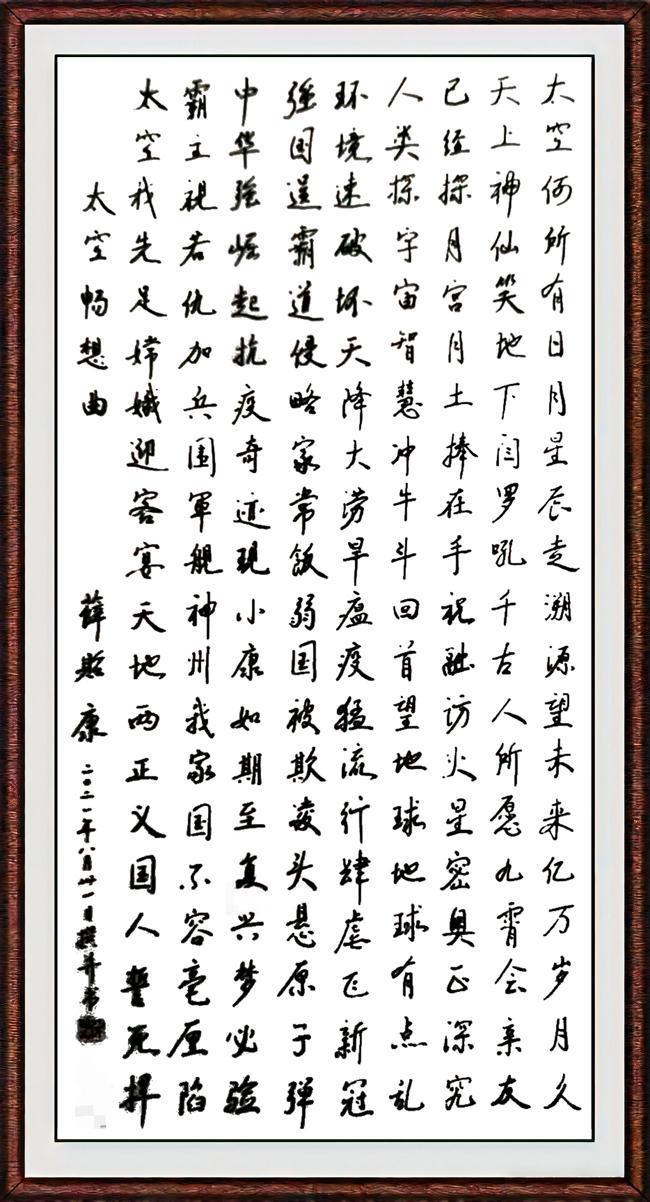 太空何所有日月星辰走溯源望未来亿万岁月久
天上神仙笑地下闫罗吼千古人所愿九霄会亲友
已经探月宫月土捧在手祝融访火星密奥正深究
人类探宇宙智慧冲牛斗回首望地球地球有点乱
环境速破坏天降大涝旱瘟疫猛流行肆虐正新冠
强国逞霸道侵略家常飯弱国被欺凌头悬原子弹
中华强崛起抗疫奇迹現小康如期至复兴梦必验
霸主視若仇加兵围軍舰神州我家国不容毫厘陷
太空我先足嫦娥迎客宴天地两正义国人誓死捍
太空畅想曲
薛斯康二〇二一年八月廿一日撰并书